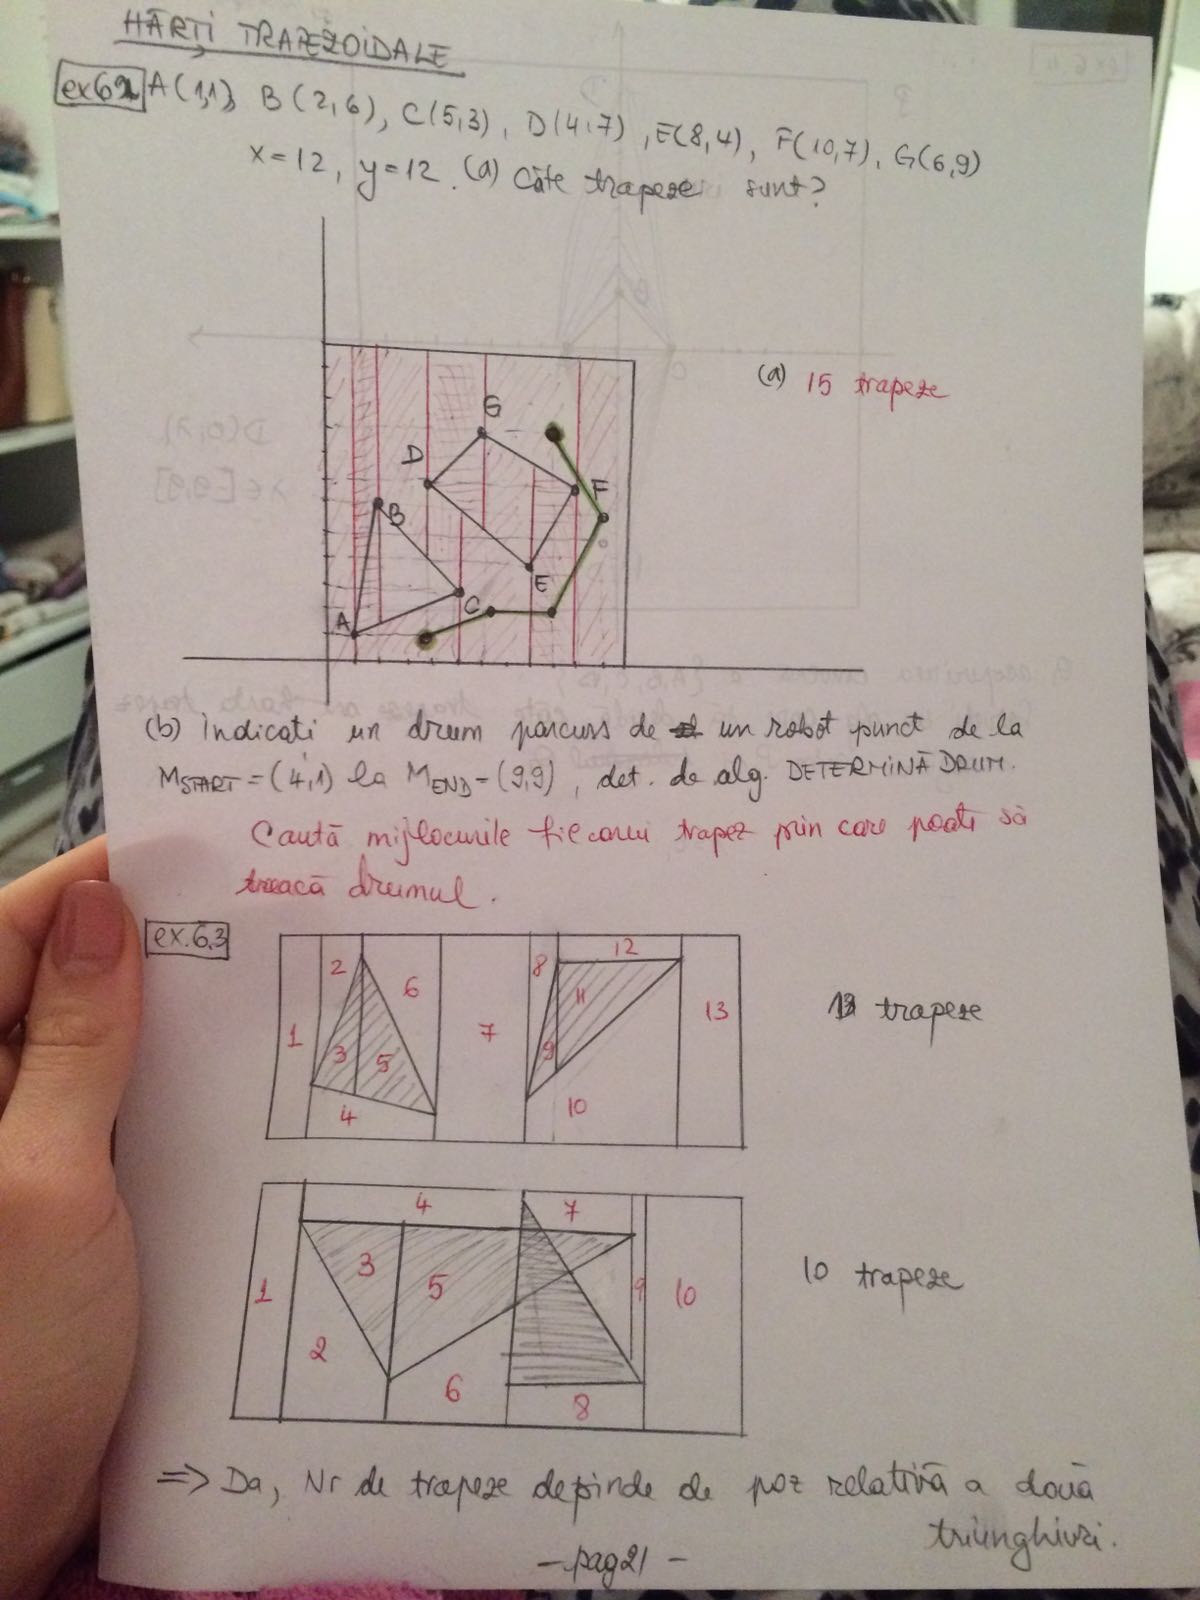 HĂRȚI TRAPEZOIDALE
ex 6.2 A(1,1), B(2,6), C(5,3), D(4,7), E(8,4), F(10,7), G(6,9)
x=12, y=12. (a) Câte trapeze sunt?
(a) 15 trapeze
G
D
F
B
E
C
A
(b) Indicați un drum parcurs de un robot punct de la
MSTART=(4,1) la MEND=(9,9), det. de alg. DETERMINĂ DRUM.
Caută mijlocurile fiecarui trapez prin care poate să
treacă drumul.
ex. 6.3
1 2 3 4 5 6 7 8 9 10 11 12 13
13 trapeze
1 2 3 4 5 6 7 8 9 10
10 trapeze
=> Da, Nr de trapeze depinde de poz relativă a două
triunghiuri.
- pag 21 -